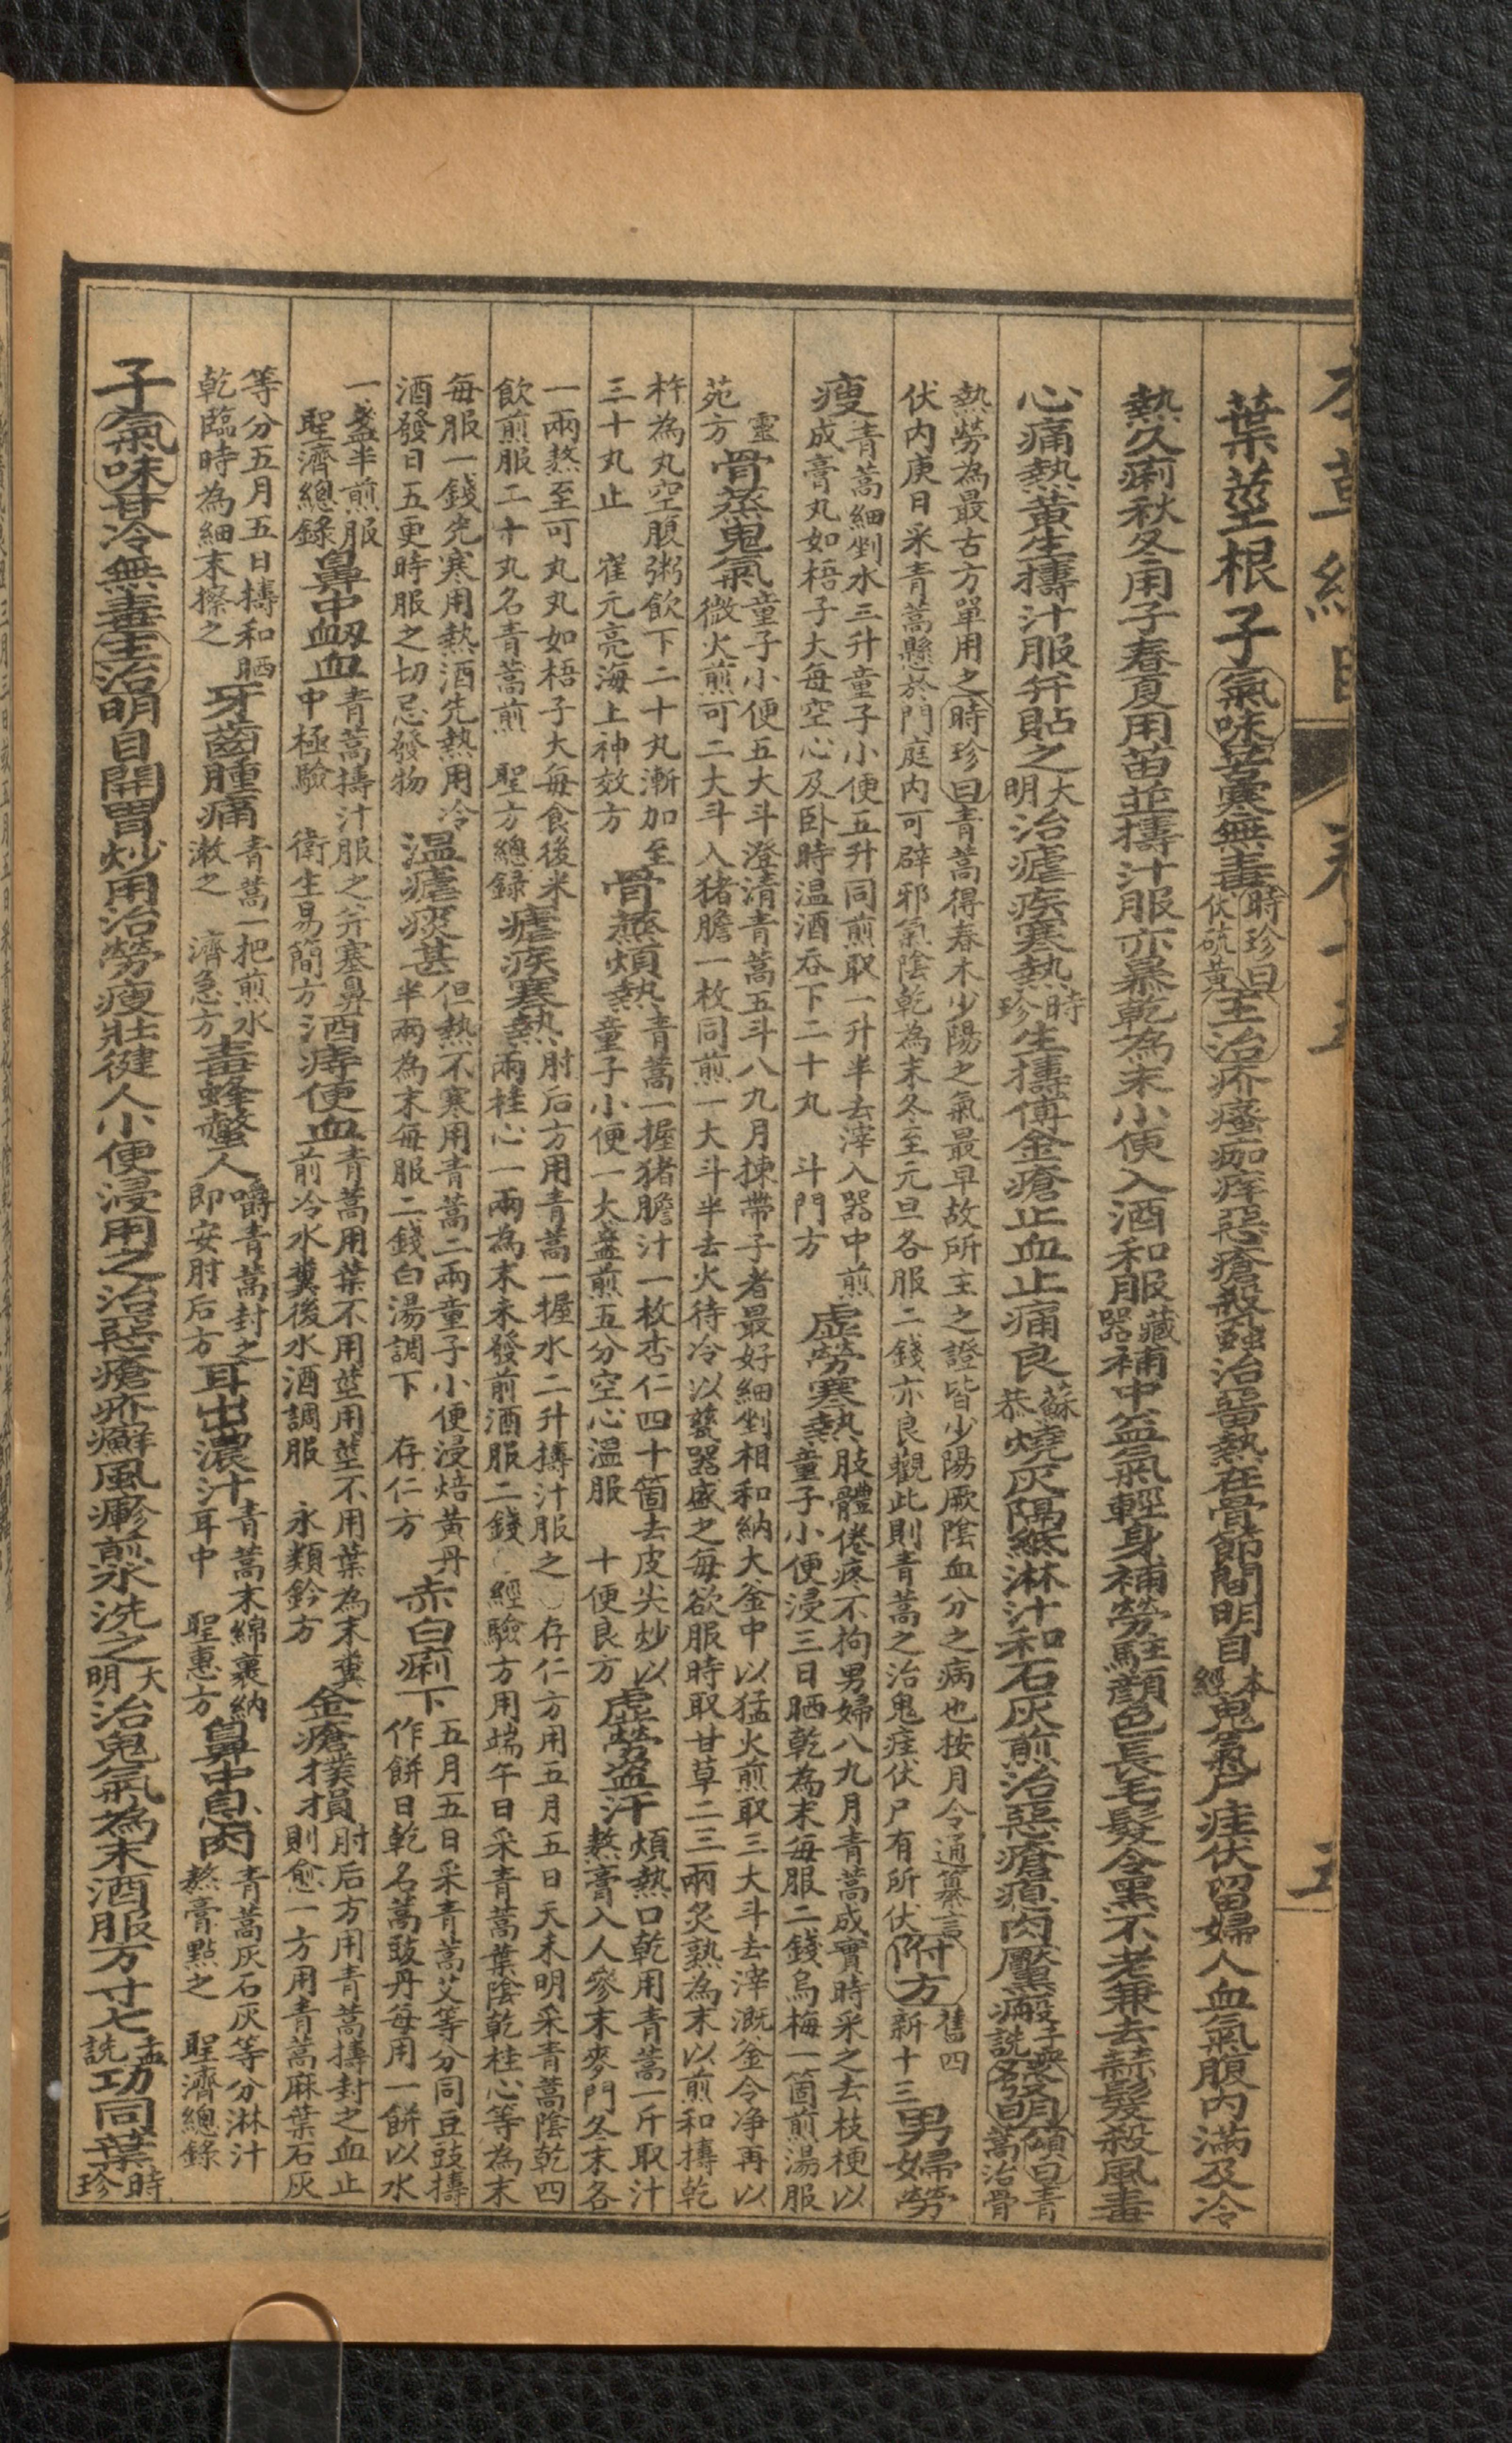 葉莖根子氣味苦寒無毒時珍曰伏硫黃主治疥瘙痂痒惡瘡殺蝨治畱熱在骨節間明目本經鬼氣尸疰伏留婦人血氣腹內滿及冷
熱久痢秋冬用子春夏用苗並擣汁服亦暴乾為末小便入酒和服藏器補中益氣輕身補勞駐顏色長毛髮令黑不老兼去蒜髮殺風毒
心痛熱黃生擣汁服并貼之大明治瘧疾寒熱時珍生擣傅金瘡止血止痛良蘇恭燒灰隔紙淋汁和石灰煎治惡瘡瘜肉黶瘢孟詵發明頌曰青蒿治骨
熱勞為最古方單用之時珍曰青蒿得春木少陽之氣最早故所主之證皆少陽厥陰血分之病也按月令通纂言
伏內庚日采青蒿懸於門庭內可辟邪氣陰乾為末冬至元旦各服二錢亦良觀此則青蒿之治鬼疰伏尸有所伏附方舊四新十三男婦勞
瘦青蒿細剉水三升童子小便五升同煎取一升半去滓入器中煎成膏丸如梧子大每空心及卧時温酒吞下二十丸 斗門方虛勞寒熱肢體倦疼不拘男婦八九月青蒿成實時采之去枝梗以童子小便浸三日晒乾為末每服二錢烏梅一箇煎湯服
靈苑方骨蒸鬼氣童子小便五大斗澄清青蒿五斗八九月揀帶子者最好細剉相和納大釜中以猛火煎取三大斗去滓溉釜令净再以微火煎可二大斗入猪膽一枚同煎一大斗半去火待冷以甆器盛之每欲服時取甘草二三兩炙熟為末以煎和擣乾
杵為丸空腹粥飲下二十丸漸加至三十丸止 崔元亮海上神效方骨蒸煩熱青蒿一握猪膽汁一枚杏仁四十箇去皮尖炒以童子小便一大盞煎五分空心温服 十便良方虛勞盜汗煩熱口乾用青蒿一斤取汁熬膏入人參末麥門冬末各
一兩熬至可丸丸如梧子大每食後米飲煎服二十丸名青蒿煎 聖方總錄瘧疾寒熱肘后方用青蒿一握水二升擣汁服之○存仁方用五月五日天未明采青蒿陰乾四兩桂心一兩為末未發前酒服二錢○經驗方用端午日采青蒿葉陰乾桂心等為末
每服一錢先寒用熱酒先熱用冷酒發日五更時服之切忌發物 温瘧痰甚但熱不寒用青蒿二兩童子小便浸焙黃丹半兩為末每服二錢白湯調下 存仁方赤白痢下五月五日采青蒿艾等分同豆豉擣作餅日乾名蒿豉丹每用一餅以水
一盞半煎服聖濟總錄鼻中衂血青蒿擣汁服之并塞鼻中極驗 衛生易簡方酒痔便血青蒿用葉不用莖用莖不用葉為末糞前冷水糞後水酒調服 永類鈐方金瘡撲損肘后方用青蒿擣封之血止則愈一方用青蒿麻葉石灰
等分五月五日擣和晒乾臨時為細末搽之牙齒腫痛青蒿一把煎水漱之 濟急方毒蜂螫人嚼青蒿封之即安肘后方耳出濃汁青蒿末綿裹納耳中 聖惠方鼻中息肉青蒿灰石灰等分淋汁熬膏點之 聖濟總錄
子氣味甘冷無毒主治明目開胃炒用治勞瘦壯健人小便浸用之治惡瘡疥癬風瘮煎水洗之大明治鬼氣為末酒服方寸匕孟詵功同葉時珍